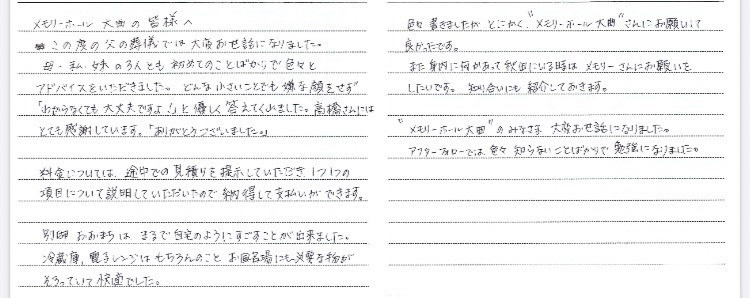 メモリーホール大曲の皆様へ
この度の父の葬儀では大変お世話になりました。
母・私・妹の3人とも初めてのことばかりで色々と
アドバイスをいただきました。どんな小さいことでも嫌な顔をせず
「わからなくても大丈夫ですよ!」と優しく答えてくれました。高橋さんには
とても感謝しています。「ありがとうございました。」
料金については、途中での見積りを提示していただき1つ1つの
項目について説明していただいたので納得して支払いができます。
別邸おおまちはまるで自宅のようにすごすことが出来ました。
冷蔵庫、電子レンジはもちろんのことお風呂場にも必要な物が
そろっていて快適でした。
色々書きましたがとにかく、"メモリーホール大曲"さんにお願いして
良かったです。
また身内に何かあって秋田にいる時はメモリーさんにお願いを
したいです。知り合いにも紹介しておきます。
"メモリーホール大曲"のみなさま大変お世話になりました。
アフターフォローでは色々知らないことばかりで勉強になりました。